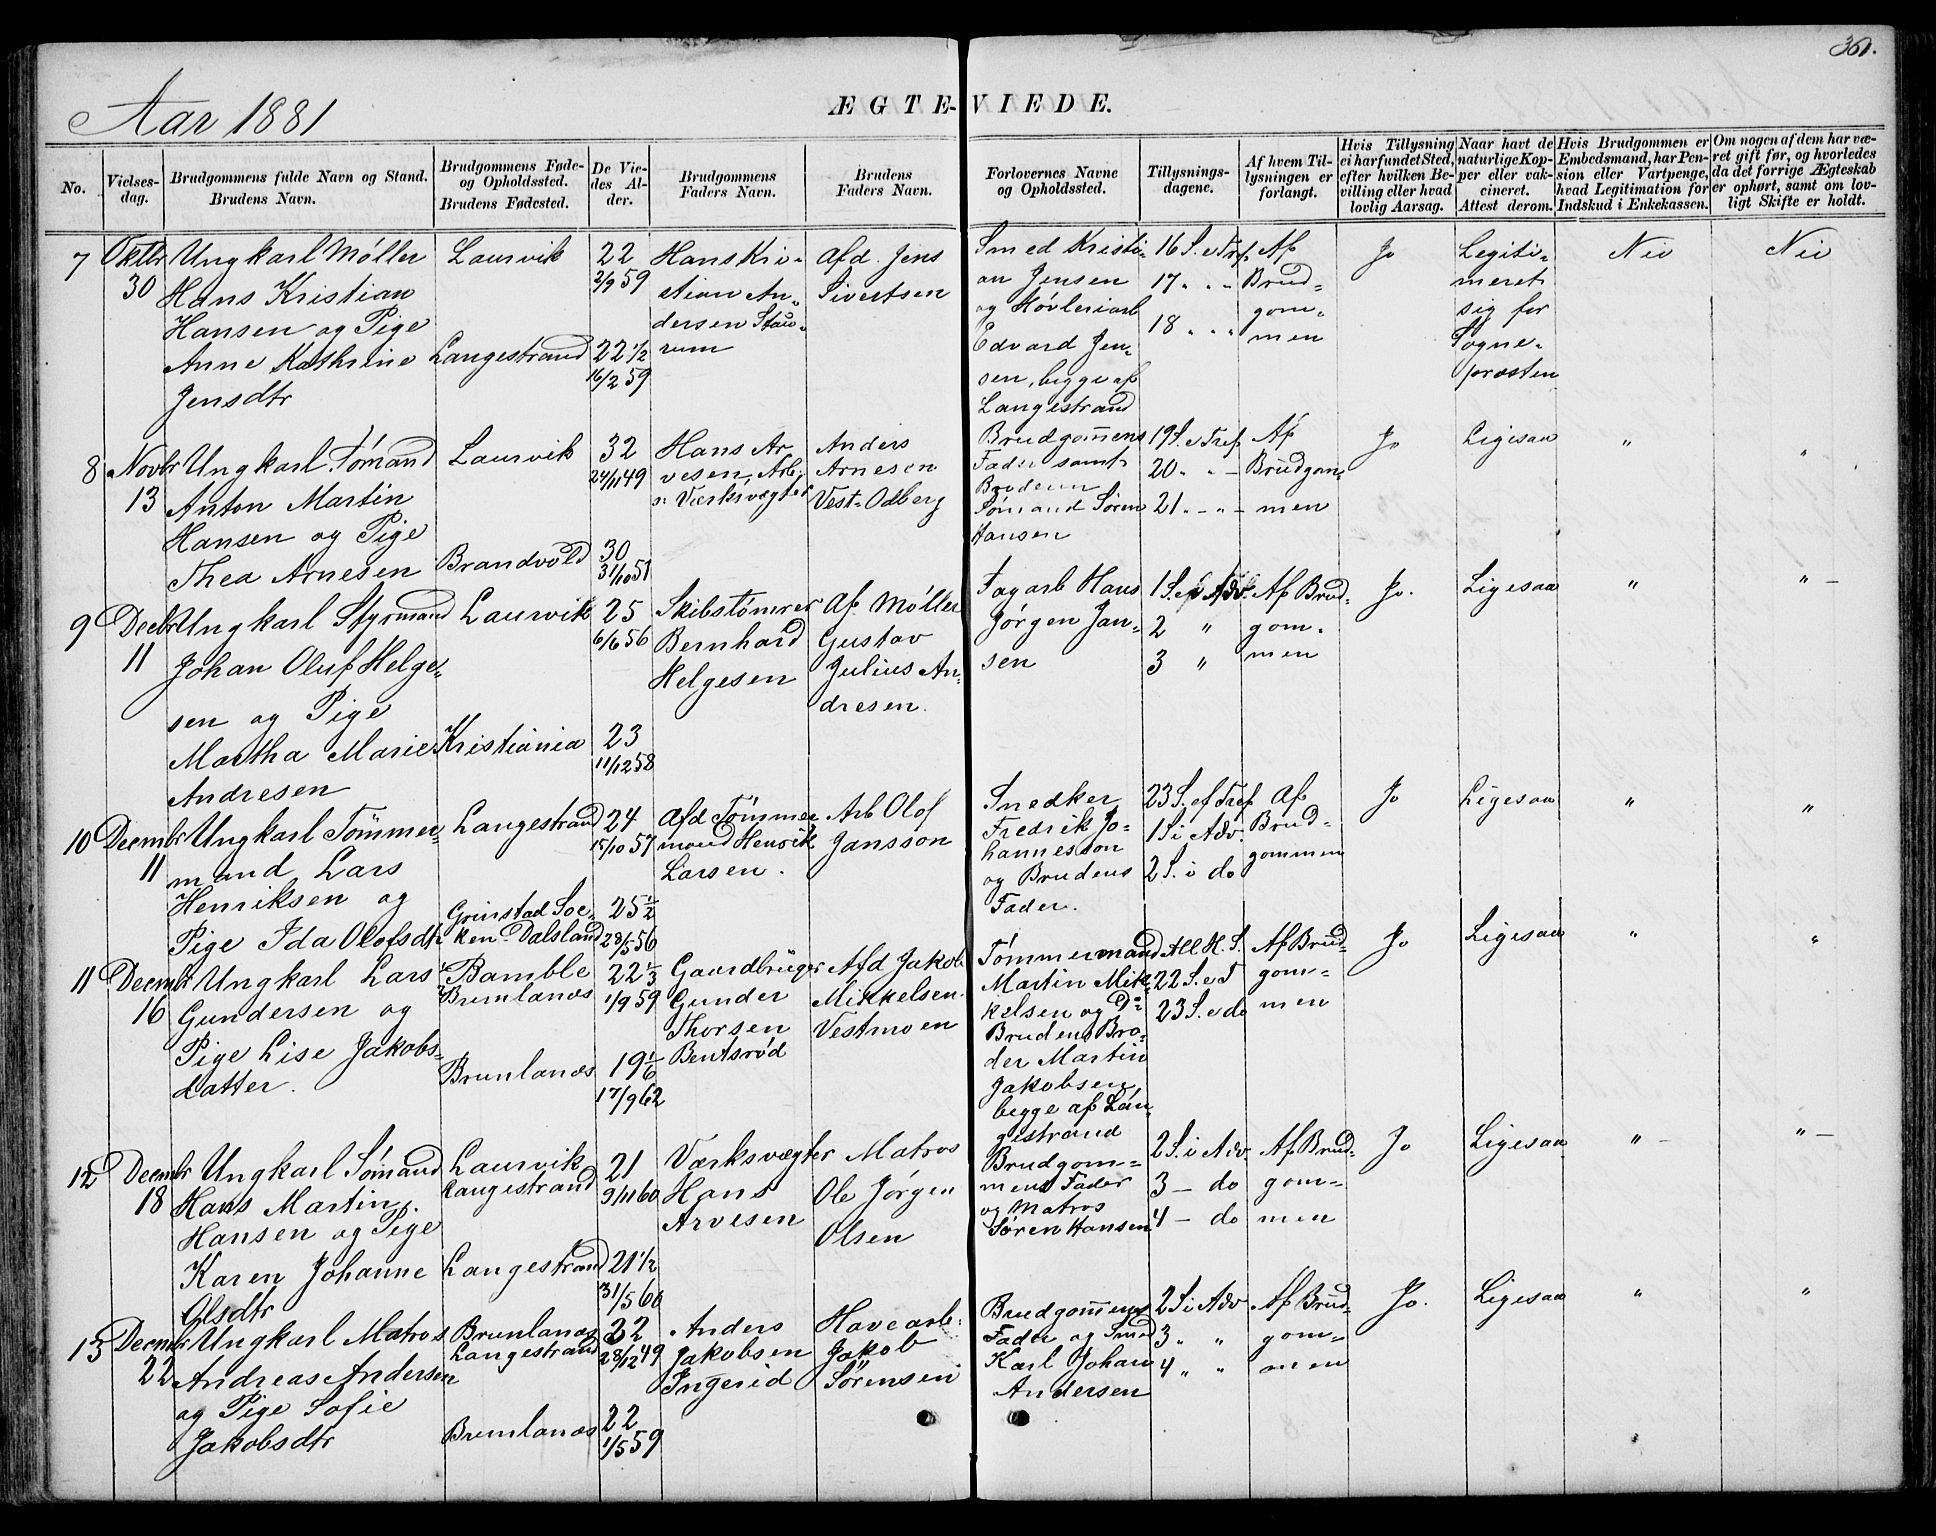 361.
Aar 1881
ÆGTE-VIEDE.
No.
Vielses-
dag.
Brudgommens fulde Navn og Stand.
Brudens Navn.
Brudgommens Føde-
og Opholdssted.
Brudens Fødested.
De Vie-
des Al-
der.
Brudgommens
Faders Navn.
Brudens
Faders Navn.
Forlovernes Navne
og Opholdssted.
Tillysnings-
dagene.
Af hvem Til-
lysningen er
forlangt.
Hvis Tillysning
ei har fundet Sted,
efter hvilken Be-
villing eller hvad
lovlig Aarsag.
Naar havt de
naturlige Kop-
per eller vak-
cineret.
Attest derom.
Hvis Brudgommen er
Embedsmand, har Pen-
sion eller Vartpenge,
hvad Legitimation for
Indskud i Enkekassen.
Om nogen af dem har væ-
ret gift før, og hvorledes
da det forrige Ægteskab
er ophørt, samt om lov-
ligt Skifte er holdt.
7
Oktbr
30
Ungkarl Møller
Hans Kristian
Hansen og Pige
Anne Kathrine
Jensdtr
Laurvik
Langestrand
22
2/9 59
22 1/2
16/2 59
Hans Kri-
stian An-
dersen Stau-
rum
Afd. Jens
Sivertsen
Smed Kristi-
an Jensen
og Høvleriarb
Edvard Jen-
sen, begge af
Langestrand
16 S. e Tref
17 " " -
18 " " "
Af
Brud-
gom-
men
Jo
Legiti-
meret
sig for
Sogne-
præsten
Nei
Nei
8
Novbr
13
Ungkarl Sømand
Anton Martin
Hansen og Pige
Thea Arnesen
Laurvik
Brandvold
32
24/11 49
30
31/10 51
Hans Ar
vesen, Arb.
s: Værksvægter
Anders
Arnesen
Vest-Odberg
Brudgom̅ens
Fader samt
Broderen
Sømand Søren
Hansen
19 S. e Tref
20 " " -
21 " - " -
Af
Brudgom-
men
Jo
Ligesaa
"
"
9
Decbr
11
Ungkarl Styrmand
Johan Oluf Helge-
sen og Pige
Martha Marie
Andresen
Laurvik
Kristiania
25
6/6 56
23
11/12 58
Skibstømrer
Bernhard
Helgesen
Af Møller
Gustav
Julius An-
dresen.
Fagarb Hans
Jørgen Jan-
sen
1 S. Adv.
2 "
3 "
Af Brud-
gom-
men
Jo.
Ligesaa
"
" -
10
Decmbr
11
Ungkarl Tømmer-
mand Lars
Henriksen og
Pige Ida Olofsdtr
Langestrand
Grinstad Soc-
ken Dalsland
24
15/10 57
25 1/2
28/5 56
Afd Tømmer
mand Henrik
Larsen.
Arb Olof
Jansson
Snedker
Fredrik Jo-
hannesson
og Brudens
Fader.
23 S. ef Tref
1 S i Adv.
2 S. i do
Af
Brud-
gommen
Jo
Ligesaa
"
"
11
Decmbr
16
Ungkarl Lars
Gundersen og
Pige Lise Jakobs-
datter.
Bamble
Brunlanæs
Brunlanæs
22 1/3
1/9 59
19 1/6
17/9 62
Gaardbruger
Gunder
Thorsen
Bentsrød
Afd Jakob
Mikkelsen
Vestmoen
Tømmermand
Martin Mik-
kelsen og
Brudens Bro-
der Martin
Jakobsen
begge af Lan-
gestrand
All H. S.
22 S. e T
23 S. e do
Af Brud-
gom-
men
Jo
Ligesaa
"
"
12
Decmbr
18
Ungkarl Sømand
Hans Martin
Hansen og Pige
Karen Johanne
Olsdtr
Laurvik
Langestrand
Langestrand
21
9/11 60
21 1/2
31/5 60
Værksvægter
Hans
Arvesen
Matros
Ole Jørgen
Olsen
Brudgom-
mens Fader
og Matros
Søren Hansen
2 S. i Adv
3 - do
4 - do
Af Brud-
gom-
men
Jo
Ligesaa
" -
" -
13
Decmbr
22
Ungkarl Matros
Andreas Andersen
og Pige Sofie
Jakobsdtr
Brunlanæs
Langestrand
Brunlanæs
22
28/12 49
22
1/5 59
Anders
Jakobsen
Ingerid
Havearb.
Jakob
Sørensen
Brudgom̅ens
Fader og Smed
Karl Johan
Andersen
2 S i Adv
3 " "
4 " "
Af Brud-
gom-
men
Jo.
Ligesaa
"
"